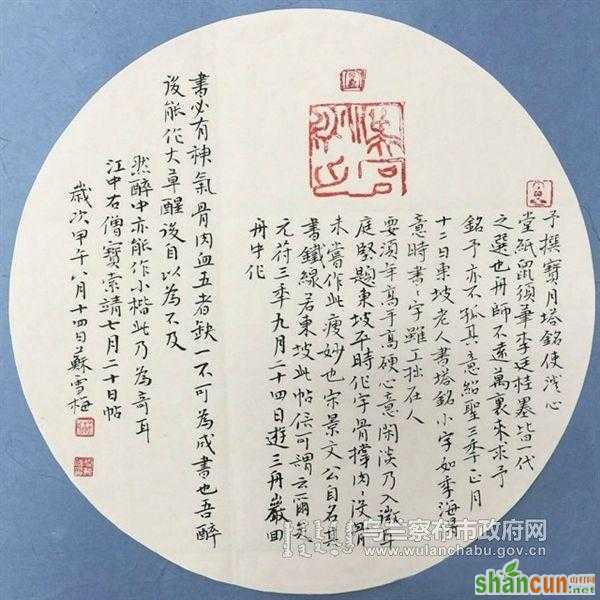 予撰寶月塔銘使澄心
堂紙鼠須筆李廷桂墨皆一代
之選也舟師不遠萬裏來求予
銘予亦不孤其意紹聖三季正月
十二日東坡老人書塔銘小字如季海得
意時書々字雖工拙在人
要須年高手硬心意閑淡乃入微耳
庭堅題東坡平時作字骨撐肉々沒骨
未嘗作此瘦妙也宋景文公自名其
書鐵線若東坡此帖信可謂云爾矣
元符三季九月二十四日遊三舟巖回
舟中作
書必有神氣骨肉血五者缺一不可為成書也吾醉
後能作大草醒後自以為不及
然醉中亦能作小楷此乃為奇耳
江中石僧寶索靖七月二十日帖
歲次甲午八月十四日蘇雪梅
乌兰察布市政府网
www.wulanchabu.gov.cn
shancun
山村网
.net